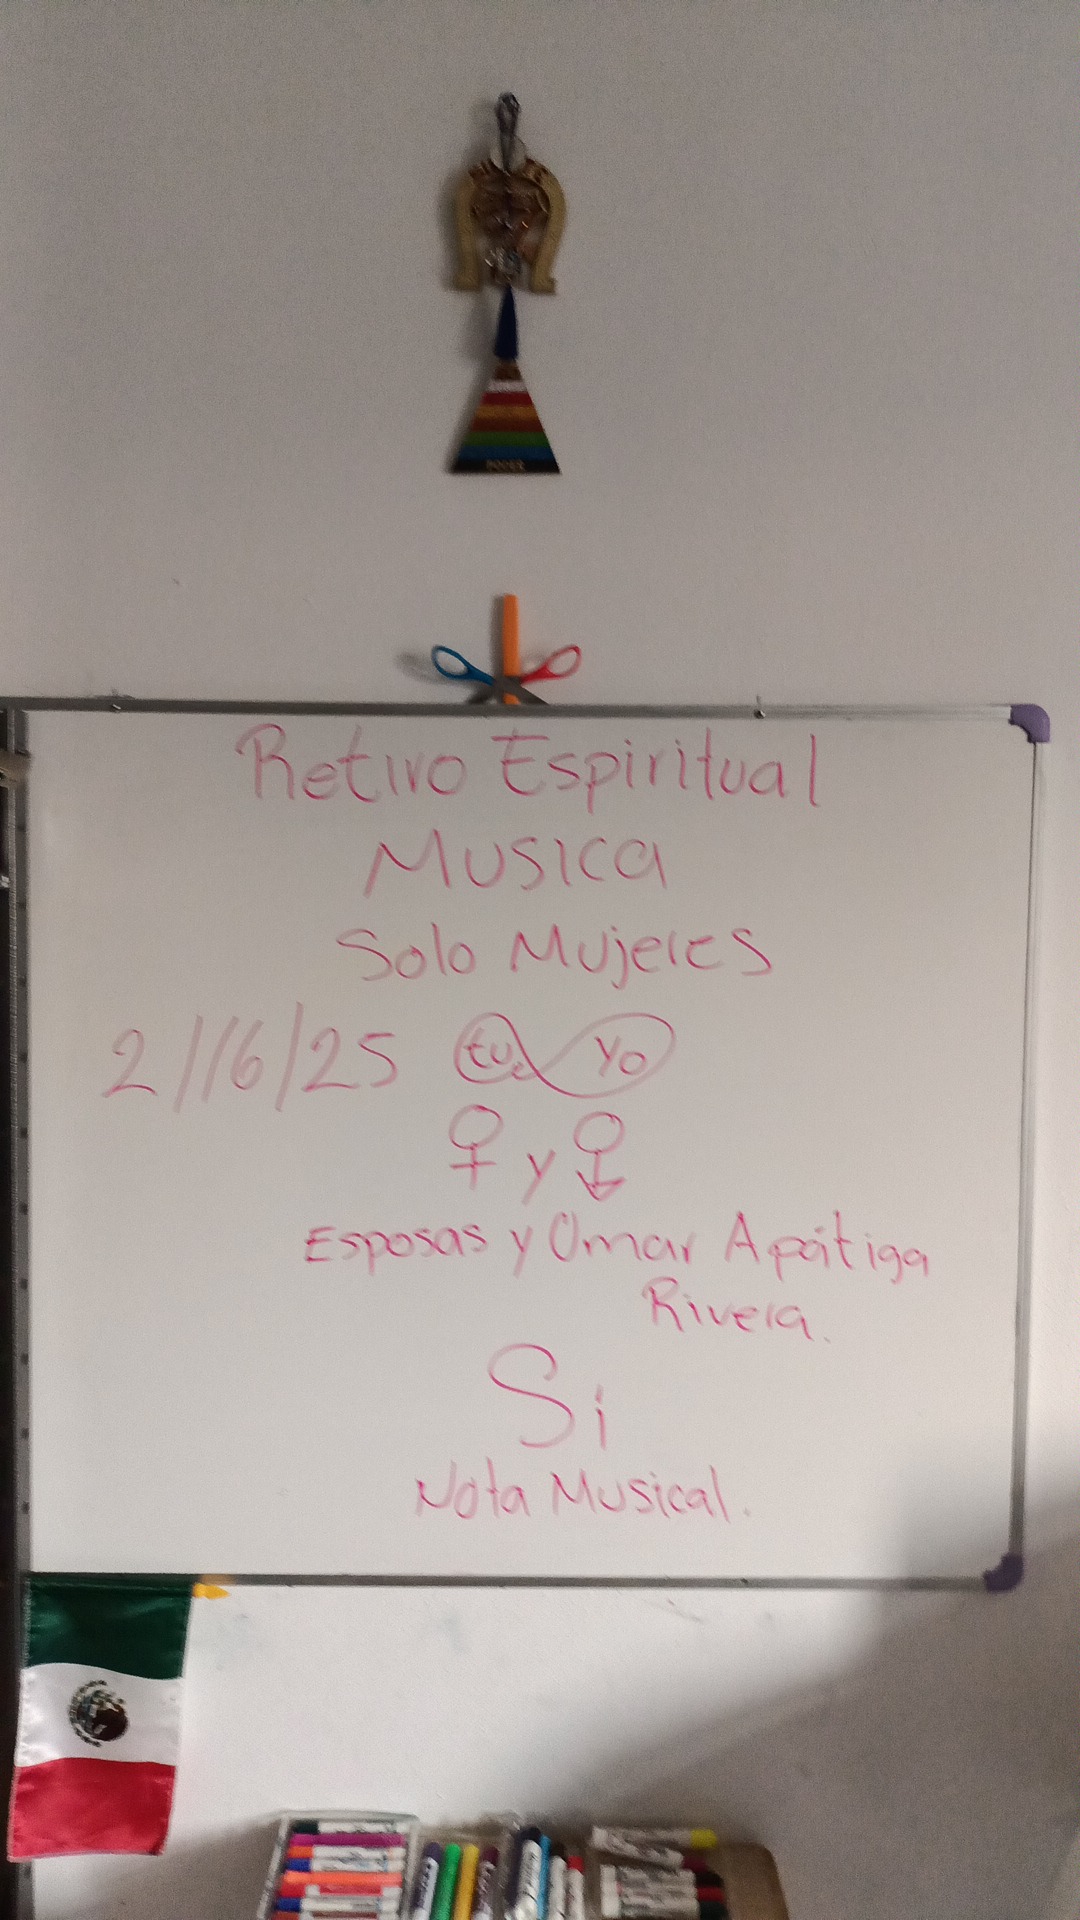 PODER
Retiro Espiritual
Musica
Solo Mujeres
2/16/25 tu yo
♀ y ♂
Esposas y Omar Apátiga
Rivera.
Si
Nota Musical.